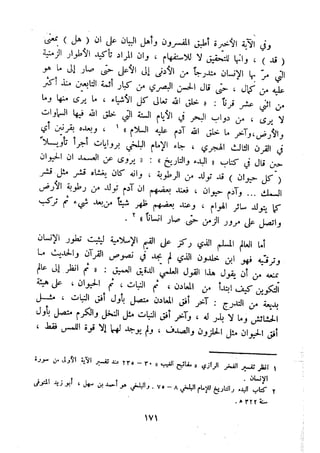 وفي الآية الأخيرة أطبق المفسرون وأهل البيان على ان ( هل ) بمعنى
( قد ) ، وانها للتحقيق لا للاستفهام ، وان المراد تأكيد الأطوار الزمنية
التي مرّ بها الإنسان متدرجاً من الأدنى إلى الأعلى حتى صار إلى ما هو
عليه من كمال ، حتى قال الحسن البصري من كبار أئمة التابعين منذ أكثر
من اثني عشر قرناً : « خلق الله تعالى كل الأشياء ، ما يرى منها وما
لا يرى ، من دواب البحر في الأيام الستة التي خلق الله فيها السماوات
والأرض ، وآخر ما خلق الله آدم عليه السلام » ١ ، وبعده بقرنين أي
في القرن الثالث الهجري ، جاء الإمام البلخي بروايات أجرأ تأويلاً
حين قال في كتاب « البدء والتاريخ » : « يروى عن الصمد ان الحيوان
( كل حيوان ) قد تولد من الرطوبة ، وانه كان يغشاه قشر مثل قشر
السمك ... وآدم حيوان ، فعند بعضهم ان آدم تولد من رطوبة الأرض
كما يتولد سائر الهوام ، وعند بعضهم ظهر شيئاً من بعد شيء ثم تركب
واتصل على مرور الزمن حتى صار انساناً » ٢ .
أما العالم المسلم الذي ركز على القيم الإسلامية ليثبت تطور الإنسان
وترقيه فهو ابن خلدون الذي لم يجد في نصوص القرآن والحديث ما
يمنعه من أن يقول هذا القول العلمي الدقيق العميق : « ثم انظر إلى عالم
التكوين كيف ابتدأ من المعادن ، ثم النبات ، ثم الحيوان ، على هيئة
بديعة من التدرج : آخر أفق المعادن متصل بأول أفق النبات ، مثل
الحشائش وما لا بذر له ، وآخر أفق النبات مثل النخل والكرم متصل بأول
أفق الحيوان مثل الحلزون والصدف ، ولم يوجد لهما إلا قوة اللمس فقط ،
١ انظر تفسير الفخر الرازي « مفاتيح الغيب » ٣٠ – ٢٣٥ عند تفسير الآية الأولى من سورة
الإنسان .
٢ كتاب البدء والتاريخ للإمام البلخي ٨ – ٧٥ . والبلخي هو أحمد بن سهل ، أبو زيد المتوفى
سنة ٣٢٢ ه .
١٧١